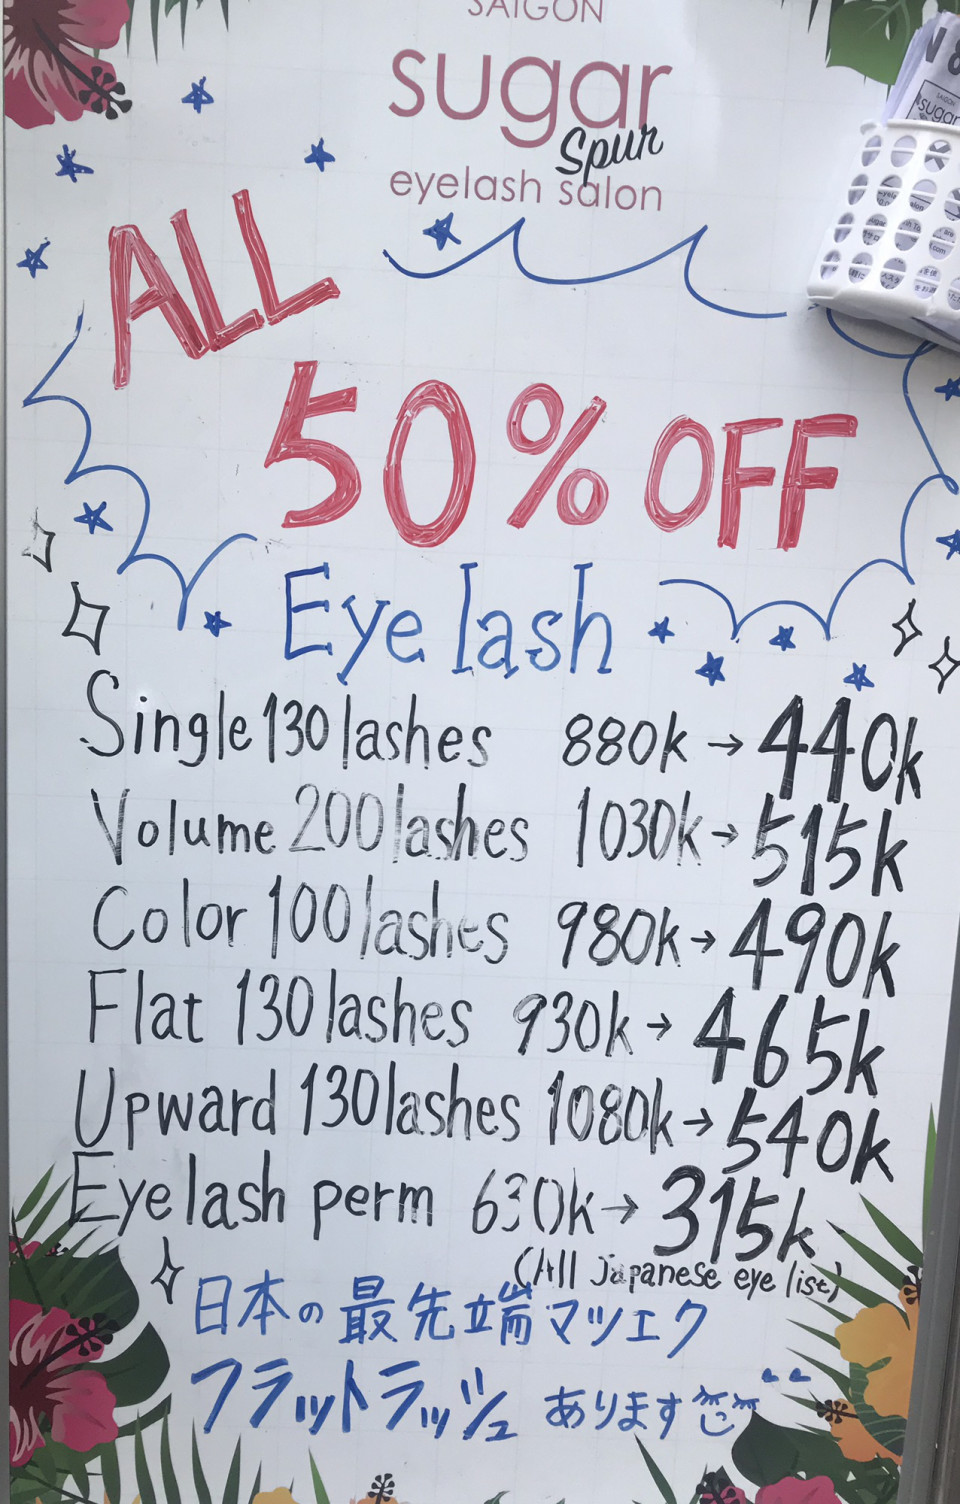 SAIGON
sugar
Spur
eyelash salon
ALL
50% OFF
Eyelash
Single 130 lashes 880k → 440k
Volume 200 lashes 1030k → 515k
Color 100 lashes 980k → 490k
Flat 130 lashes 930k → 465k
Upward 130 lashes 1080k → 540k
Eyelash perm 630k → 315k
(All japanese eye list)
日本の最先端マツエク
フラットラッシュ あります
SAIGON
sugar